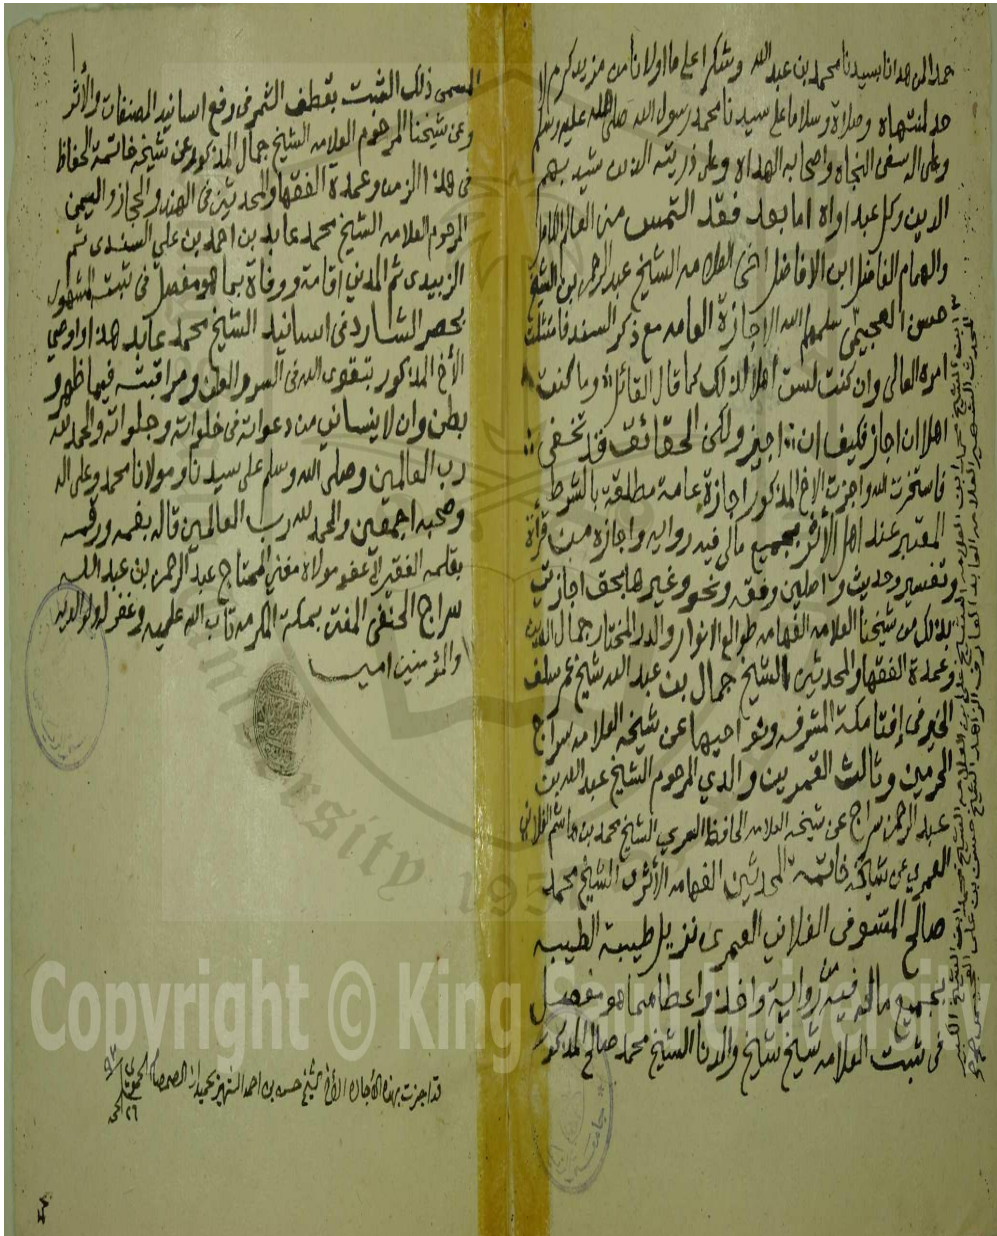 حمدا لمن هدانا بسيدنا محمد بن عبد الله وشكرا على ما اولانا من مزيد كرم لا
حد لمنتهاه وصلاة وسلاما على سيدنا محمد رسول الله صلى الله عليه وسلم
وعلى اله سفن النجاه واصحابه الهداه وعلى ذريته الذين شيد بهم
الدين وكل عبد اواه اما بعد فقد التمس مني العالم الكامل
والهمام الفاضل ابن الافاضل اخي العلامه الشيخ عبد الرحمن بن الشيخ
حسن العجيمي سلمهم الله الاجازة العامه مع ذكر السند فامتثلت
امره العالي وان كنت لست اهلا لذلك كما قال القائل وما كنت
اهلا ان اجاز فكيف ان اجيز ولكن الحقائق قد تخفى
فاستخرت الله واجزت الاخ المذكور اجازة عامة مطلقة بالشرط
المعتبر عند اهل الأثر بجميع مالي فيه روايه واجازه من قراءة
وتفسير وحديث واصلين وفقه ونحو وغيرها بحق اجازتي
بذلك من شيخنا العلامه الفهامه طوالع الانوار والدر المختار جمال الدين
وعمدة الفقها والمحدثين الشيخ جمال بن عبد الله شيخ عمر سلف
الخير في إفتا مكة المشرفه ونواحيها عن شيخه العلامه سراج
الحرمين وثالث القمرين والدي المرحوم الشيخ عبد الله بن
عبد الرحمن سراج عن شيخه العلامه الحافظ العمري الشيخ محمد بن هاشم الفلاني
العمري عن شيخه خاتمة المحدثين الفهامه الأثري الشيخ محمد
صالح المسوفي الفلاني العمري نزيل طيبة الطيبه
بجميع ماله فيه من رواية واخذ واعطا مما هو مفصل
في ثبت العلامه شيخ شيخ والدنا الشيخ محمد صالح المذكور
المسمى ذلك الثبت بقطف الثمر في رفع اسانيد المصنفات والأثر
وعن شيخنا المرحوم العلامه الشيخ جمال المذكور عن شيخه خاتمة الحفاظ
في هذا الزمن وعمدة الفقها والمحدثين في الهند والحجاز واليمن
المرحوم العلامه الشيخ محمد عابد بن احمد بن علي السندي ثم
الزبيدي ثم المدني اقامة ووفاة بما هو مفصل في ثبته المشهور
بحصر الشارد في اسانيد الشيخ محمد عابد هذا واوصي
الأخ المذكور بتقوى الله في السر والعلن ومراقبته فيما ظهر و
بطن وان لا ينساني من دعواته في خلواته وجلواته والحمد لله
رب العالمين وصلى الله وسلم على سيدنا ومولانا محمد وعلى اله
وصحبه اجمعين والحمد لله رب العالمين قاله بفمه ورقمه
بقلمه الفقير لعفو مولاه مغني المحتاج عبد الرحمن بن عبد الله
سراج الحنفي المفتي بمكة المكرمه تاب الله عليه وغفر له ولوالديه
والمؤمنين امين
قد اجزت بهذه الأجازه الأخ الشيخ حسن بن احمد الشهير
Copyright © King Saud University
University 195